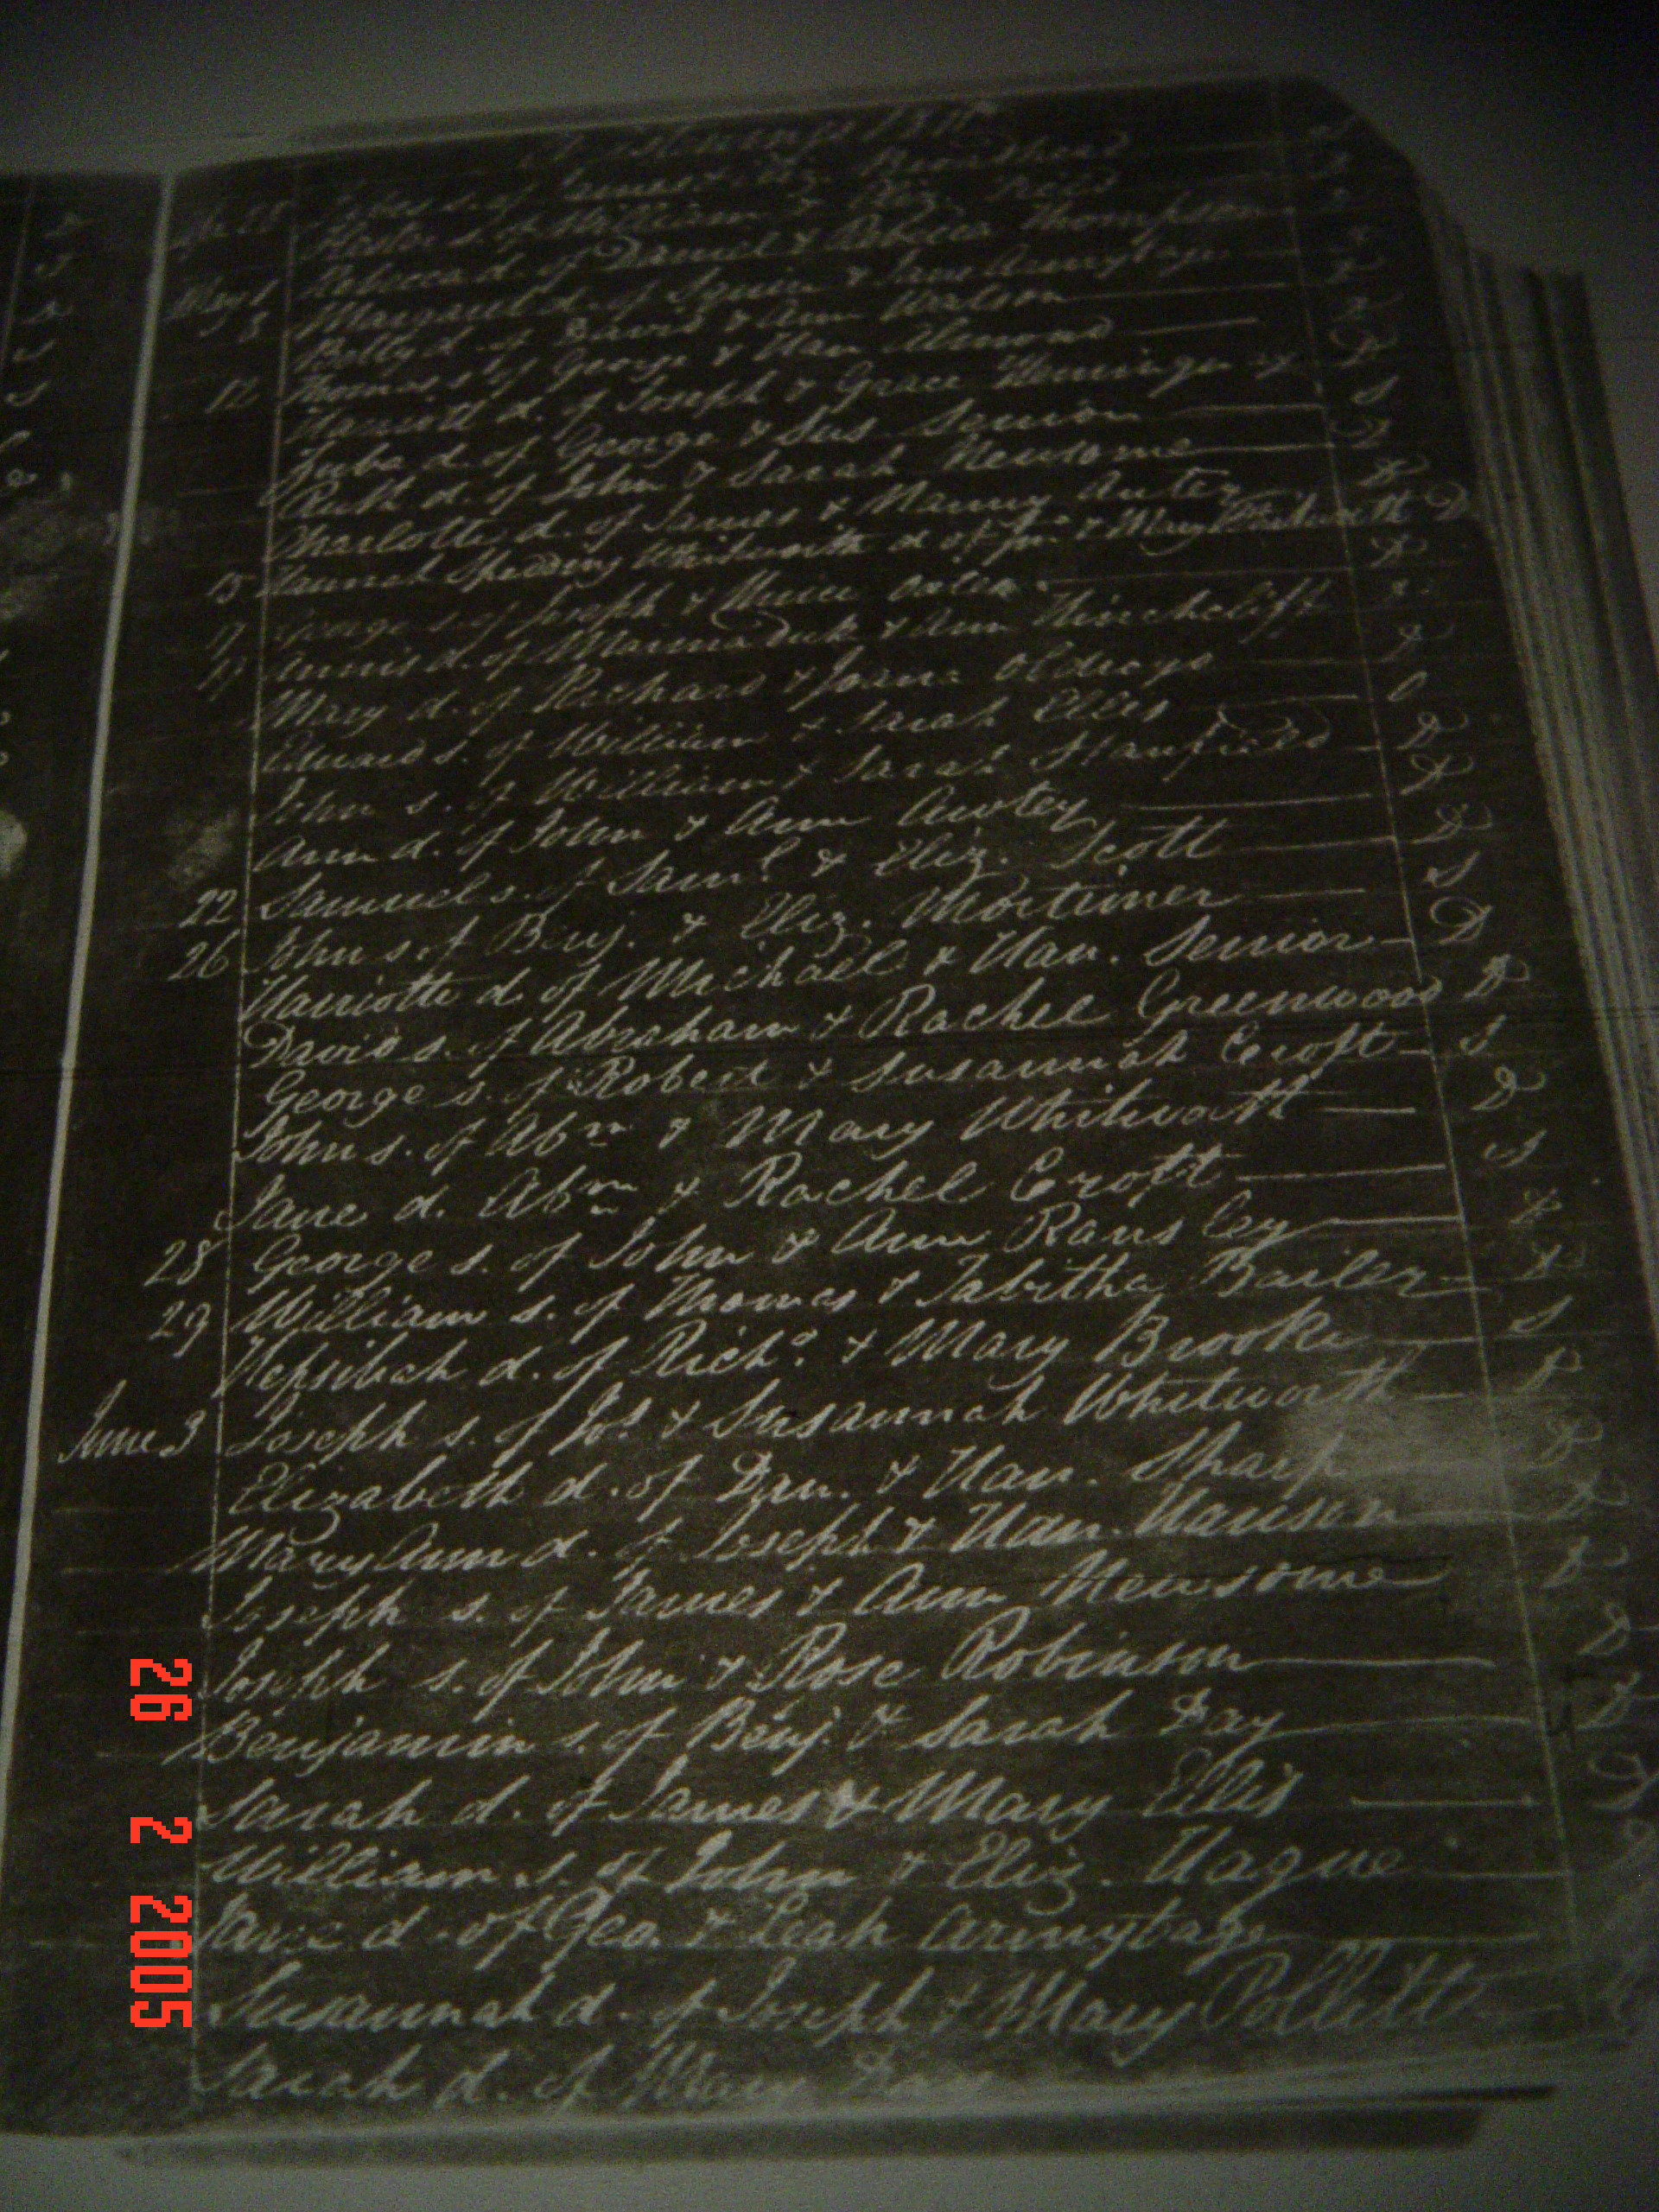 s. of James & Broadhead
s. of William & Eliz.
Rebecca d. of Daniel & Rebecca Thompson
May 1 Margaret d. of Squire & Jane Armytage
8 Betty d. of David & Ann Watson
Thomas s. of George & Han.
12 Harriott d. of Joseph & Grace Hemingway
Juba d. of George & Sus Senior
Ruth d. of John & Sarah Newsome
Charlotte d. of James & Nanny Autey
Hannah Spedding Whitworth d of Jn. & Mary Whitworth D
15 George s. of Joseph & Oates
17 Annis d. of Marmaduke & Ann Hinchcliff
19 Mary d. of Richard & Joana Oldroyd
Edward s. of William & Sarah Ellis
John s. of William & Sarah Stanfield D
Ann d. of John & Ann Awtey D
22 Samuel s. of Saml. & Eliz. Scott D
26 John s. of Benj. & Eliz. Mortimer S
Harriotte d. of Michael & Han. Senior D
David s. of Abraham & Rachel Greenwood D
George s. of Robert & Susannah Croft S
John s. of Abm & Mary Whitworth D
Jane d. Abm & Rachel Croft S
28 George s. of John & Ann Ransley
29 William s. of Thomas & Tabitha Bailey
Hepsibah d. of Richd. & Mary Brooke S
June 3 Joseph s. of Jos. & Susannah Whitworth
Elizabeth d. of Dan. & Han. Sharp D
Mary Ann d. of Joseph & Han. Hanson D
Joseph s. of James & Ann Newsome D
Joseph s. of John & Rose Robinson D
Benjamin s. of Benj. & Sarah Day D
Sarah d. of James & Mary Ellis D
William s. of John & Eliz. Hague
Jane d. of Geo. & Leah Armytage
Susannah d. of Joseph & Mary Pollitt
Sarah d. of Mary
26 2 2005